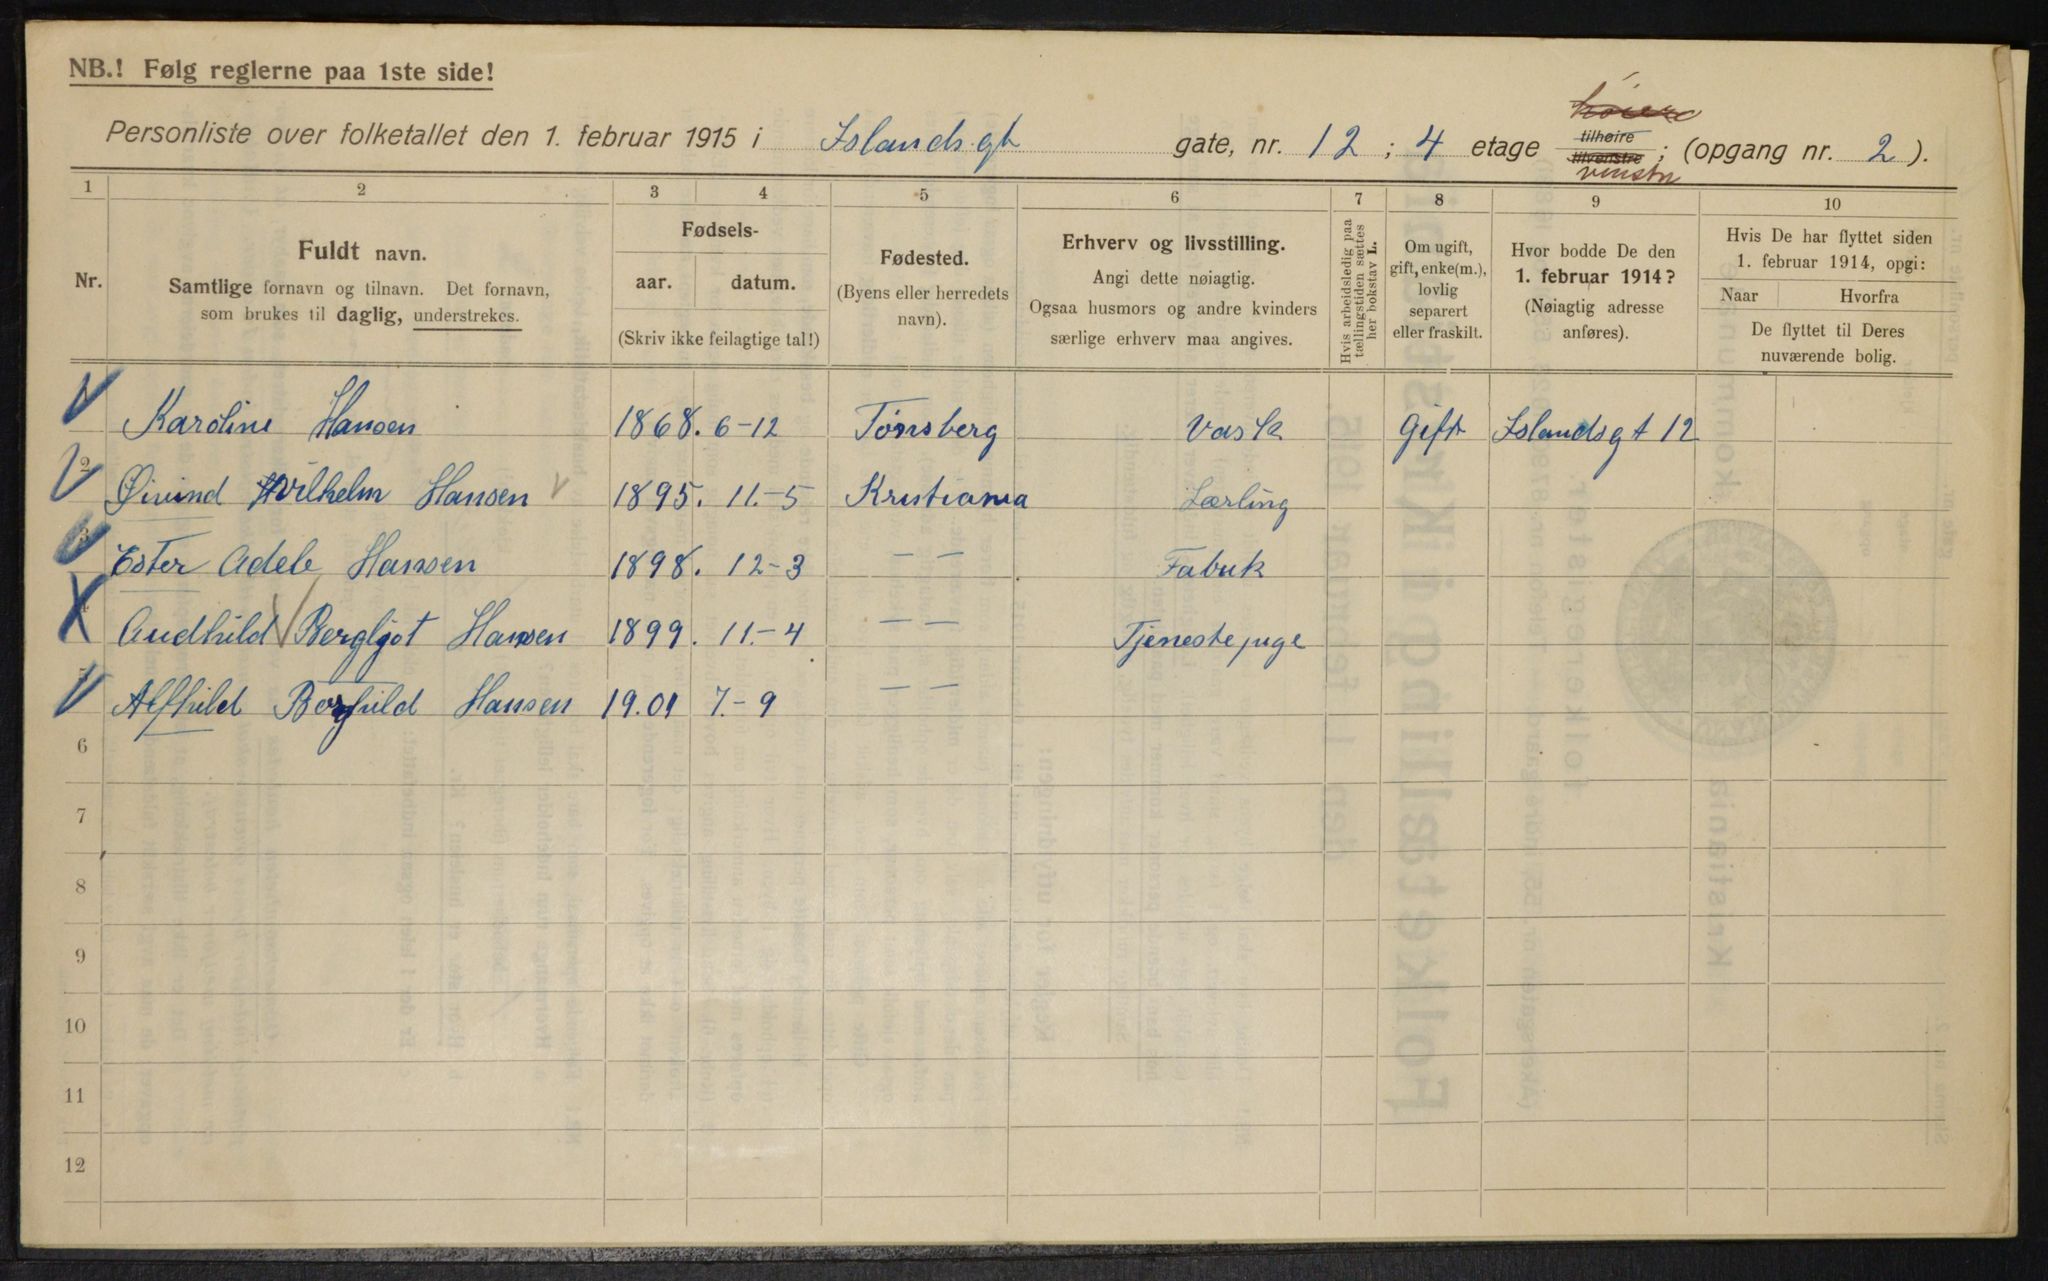 NB.! Følg reglerne paa 1ste side!
Personliste over folketallet den 1. februar 1915 i Islandsgt gate, nr. 12 ; 4 etage tilhøire tilvenstre venstre ; (opgang nr. 2 ).
1 2 3 4 5 6 7 8 9 10
Nr.
Fuldt navn.
Samtlige fornavn og tilnavn. Det fornavn,
som brukes til daglig, understrekes.
Fødsels-
aar. datum.
(Skriv ikke feilagtige tal!)
Fødested.
(Byens eller herredets
navn).
Erhverv og livsstilling.
Angi dette nøiagtig.
Ogsaa husmors og andre kvinders
særlige erhverv maa angives.
Hvis arbeidsledig paa
tællingstiden sættes
her bokstav L.
Om ugift,
gift, enke(m.),
lovlig
separert
eller fraskilt.
Hvor bodde De den
1. februar 1914?
(Nøiagtig adresse
anføres).
Hvis De har flyttet siden
1. februar 1914, opgi:
Naar Hvorfra
De flyttet til Deres
nuværende bolig.
Karoline Hansen 1868. 6-12 Tønsberg Vask Gift Islandsgt 12
2 Øivind Wilhelm Hansen 1895. 11.-5 Kristiania Lærling
3 Ester Adele Hansen 1898. 12-3 — — Fabrik
4 Audhild Bergljot Hansen 1899. 11.-4 — — Tjenestepige
5 Alfhild Borghild Hansen 19.01 7.-9 — —
6
7
8
9
10
11
12